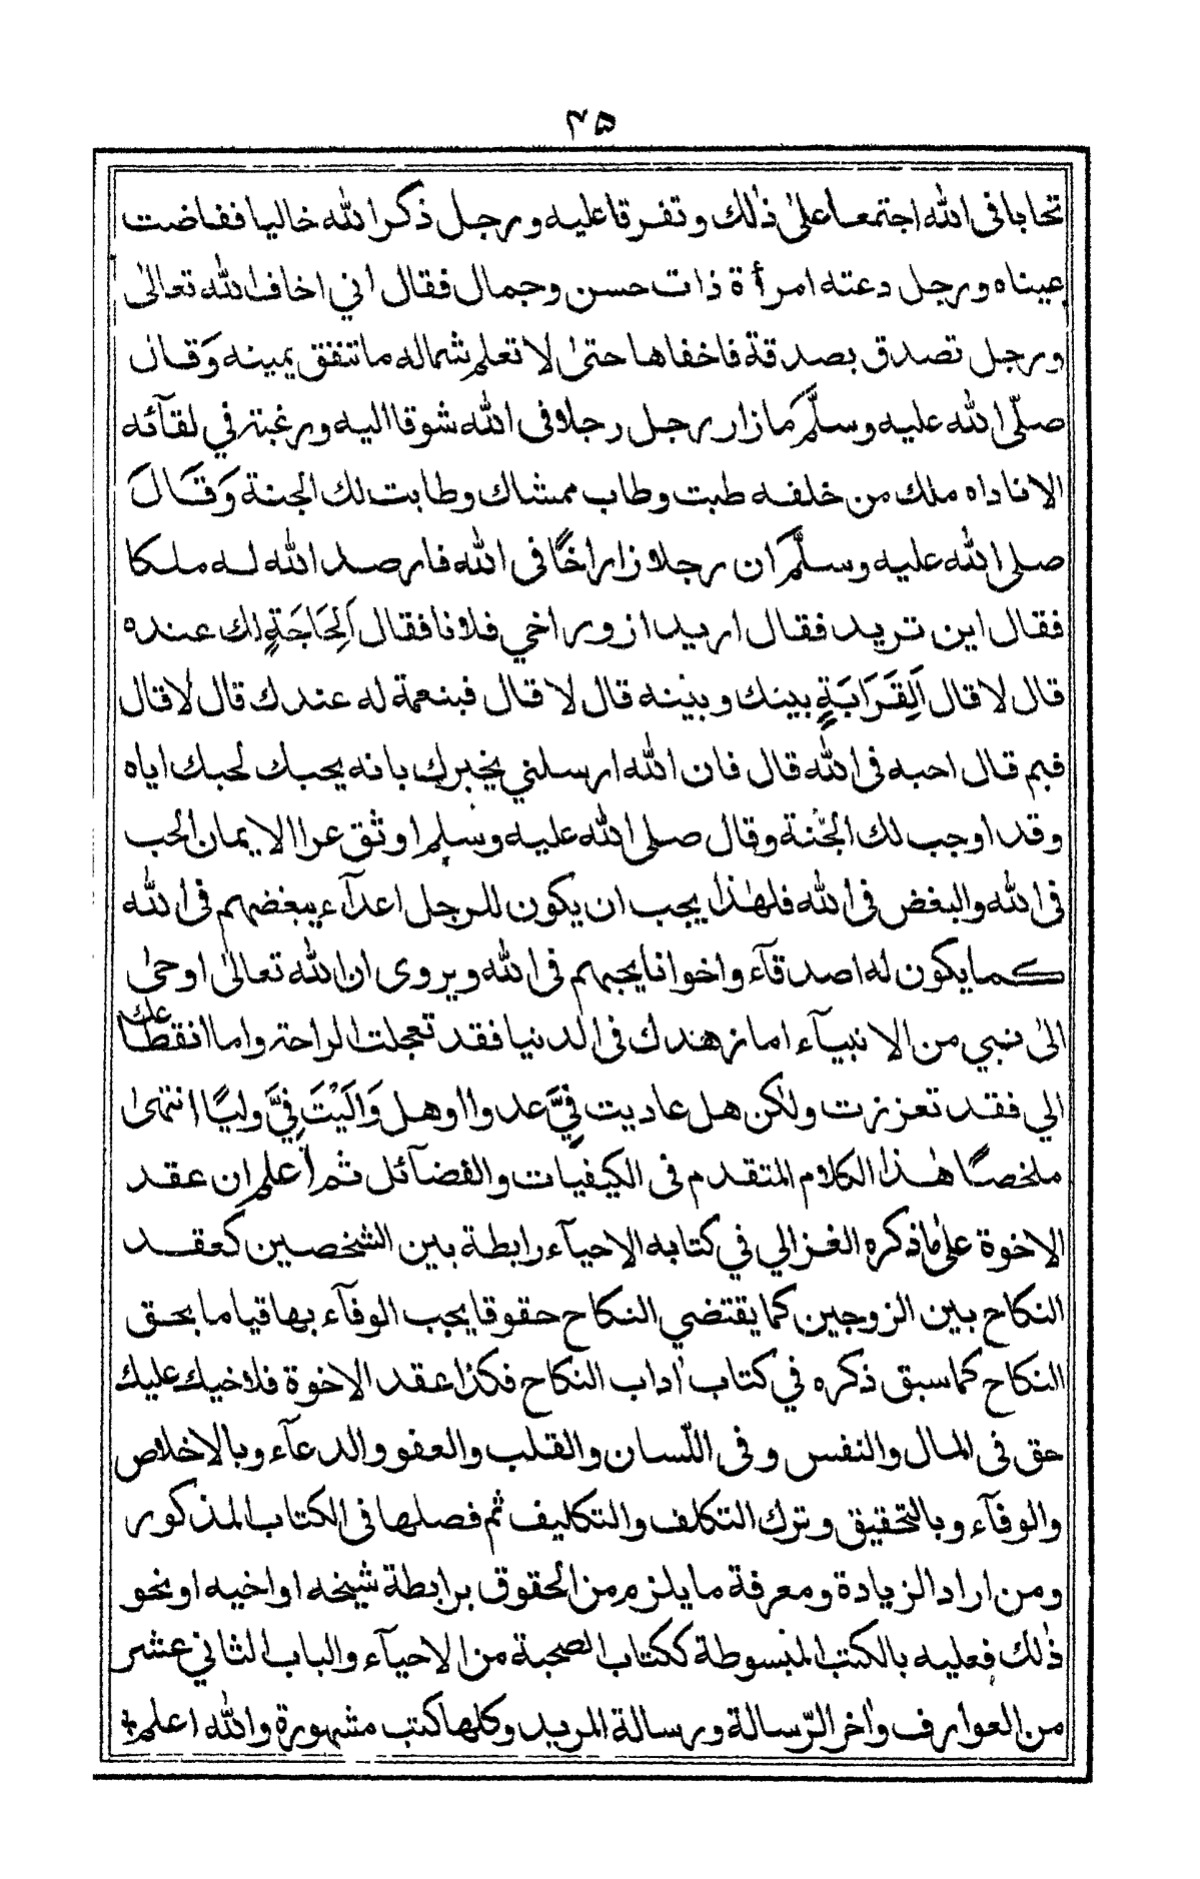 ٤٥
تحابا فى الله اجتمعا علىٰ ذٰلك وتفرقا عليه ورجل ذكر الله خاليا ففاضت
عيناه ورجل دعته امرأة ذات حسن وجمال فقال اني اخاف الله تعالىٰ
ورجل تصدق بصدقة فاخفاها حتىٰ لا تعلم شماله ما تنفق يمينه وَقَال
صلّى الله عليه وسلَّم مَا زار رجل رجلا فى الله شوقا اليه ورغبة في لقآئه
الا ناداه ملك من خلفه طبت وطاب ممشاك وطابت لك الجنة وَقَالَ
صلى الله عليه وسلَّم ان رجلا زار اخًا فى الله فارصد الله له ملكا
فقال اين تريد فقال اريد ازور اخي فلانا فقال اَلِحَاجَةٍ لك عنده
قال لا قال اَلِقَرَابَةٍ بينك وبينه قال لا قال فبنعمة له عندك قال لا قال
فبم قال احبه فى الله قال فان الله ارسلني يخبرك بانه يحبك لحبك اياه
وقد اوجب لك الجنّة وقال صلى الله عليه وسلم اوثق عرا الايمان الحب
فى الله والبغض فى الله فلهٰذا يجب ان يكون للرجل اعدآء يبغضهم فى الله
كما يكون له اصدقآء واخوانا يحبهم فى الله ويروى ان الله تعالىٰ اوحىٰ
الىٰ نبي من الانبيآء اما زهدك فى الدنيا فقد تعجلت الراحة واما انقطاعك
الي فقد تعززت ولٰكن هل عاديت فِيَّ عدوا او هل وَالَيْتَ فِيَّ وليًا انتهىٰ
ملخصًا هٰذا الكلام المتقدم فى الكيفيات والفضآئل ثم اعلم ان عقد
الاخوة علىٰ ما ذكره الغزالي في كتابه الاحيآء رابطة بين الشخصين كعقد
النكاح بين الزوجين كما يقتضي النكاح حقوقا يجب الوفآء بها قياما بحق
النكاح كما سبق ذكره في كتاب اٰداب النكاح فكذا عقد الاخوة فلاخيك عليك
حق فى المال والنفس وفى اللّسان والقلب والعفو والدعآء وبالاخلاص
والوفآء وبالتحقيق وترك التكلف والتكليف ثم فصلها فى الكتاب المذكور
ومن اراد الزيادة ومعرفة ما يلزم من الحقوق برابطة شيخه او اخيه او نحو
ذٰلك فعليه بالكتب المبسوطة ككتاب الصحبة من الاحيآء والباب الثاني عشر
من العوارف واٰخر الرّسالة ورسالة المريد وكلها كتب مشهورة والله اعلم